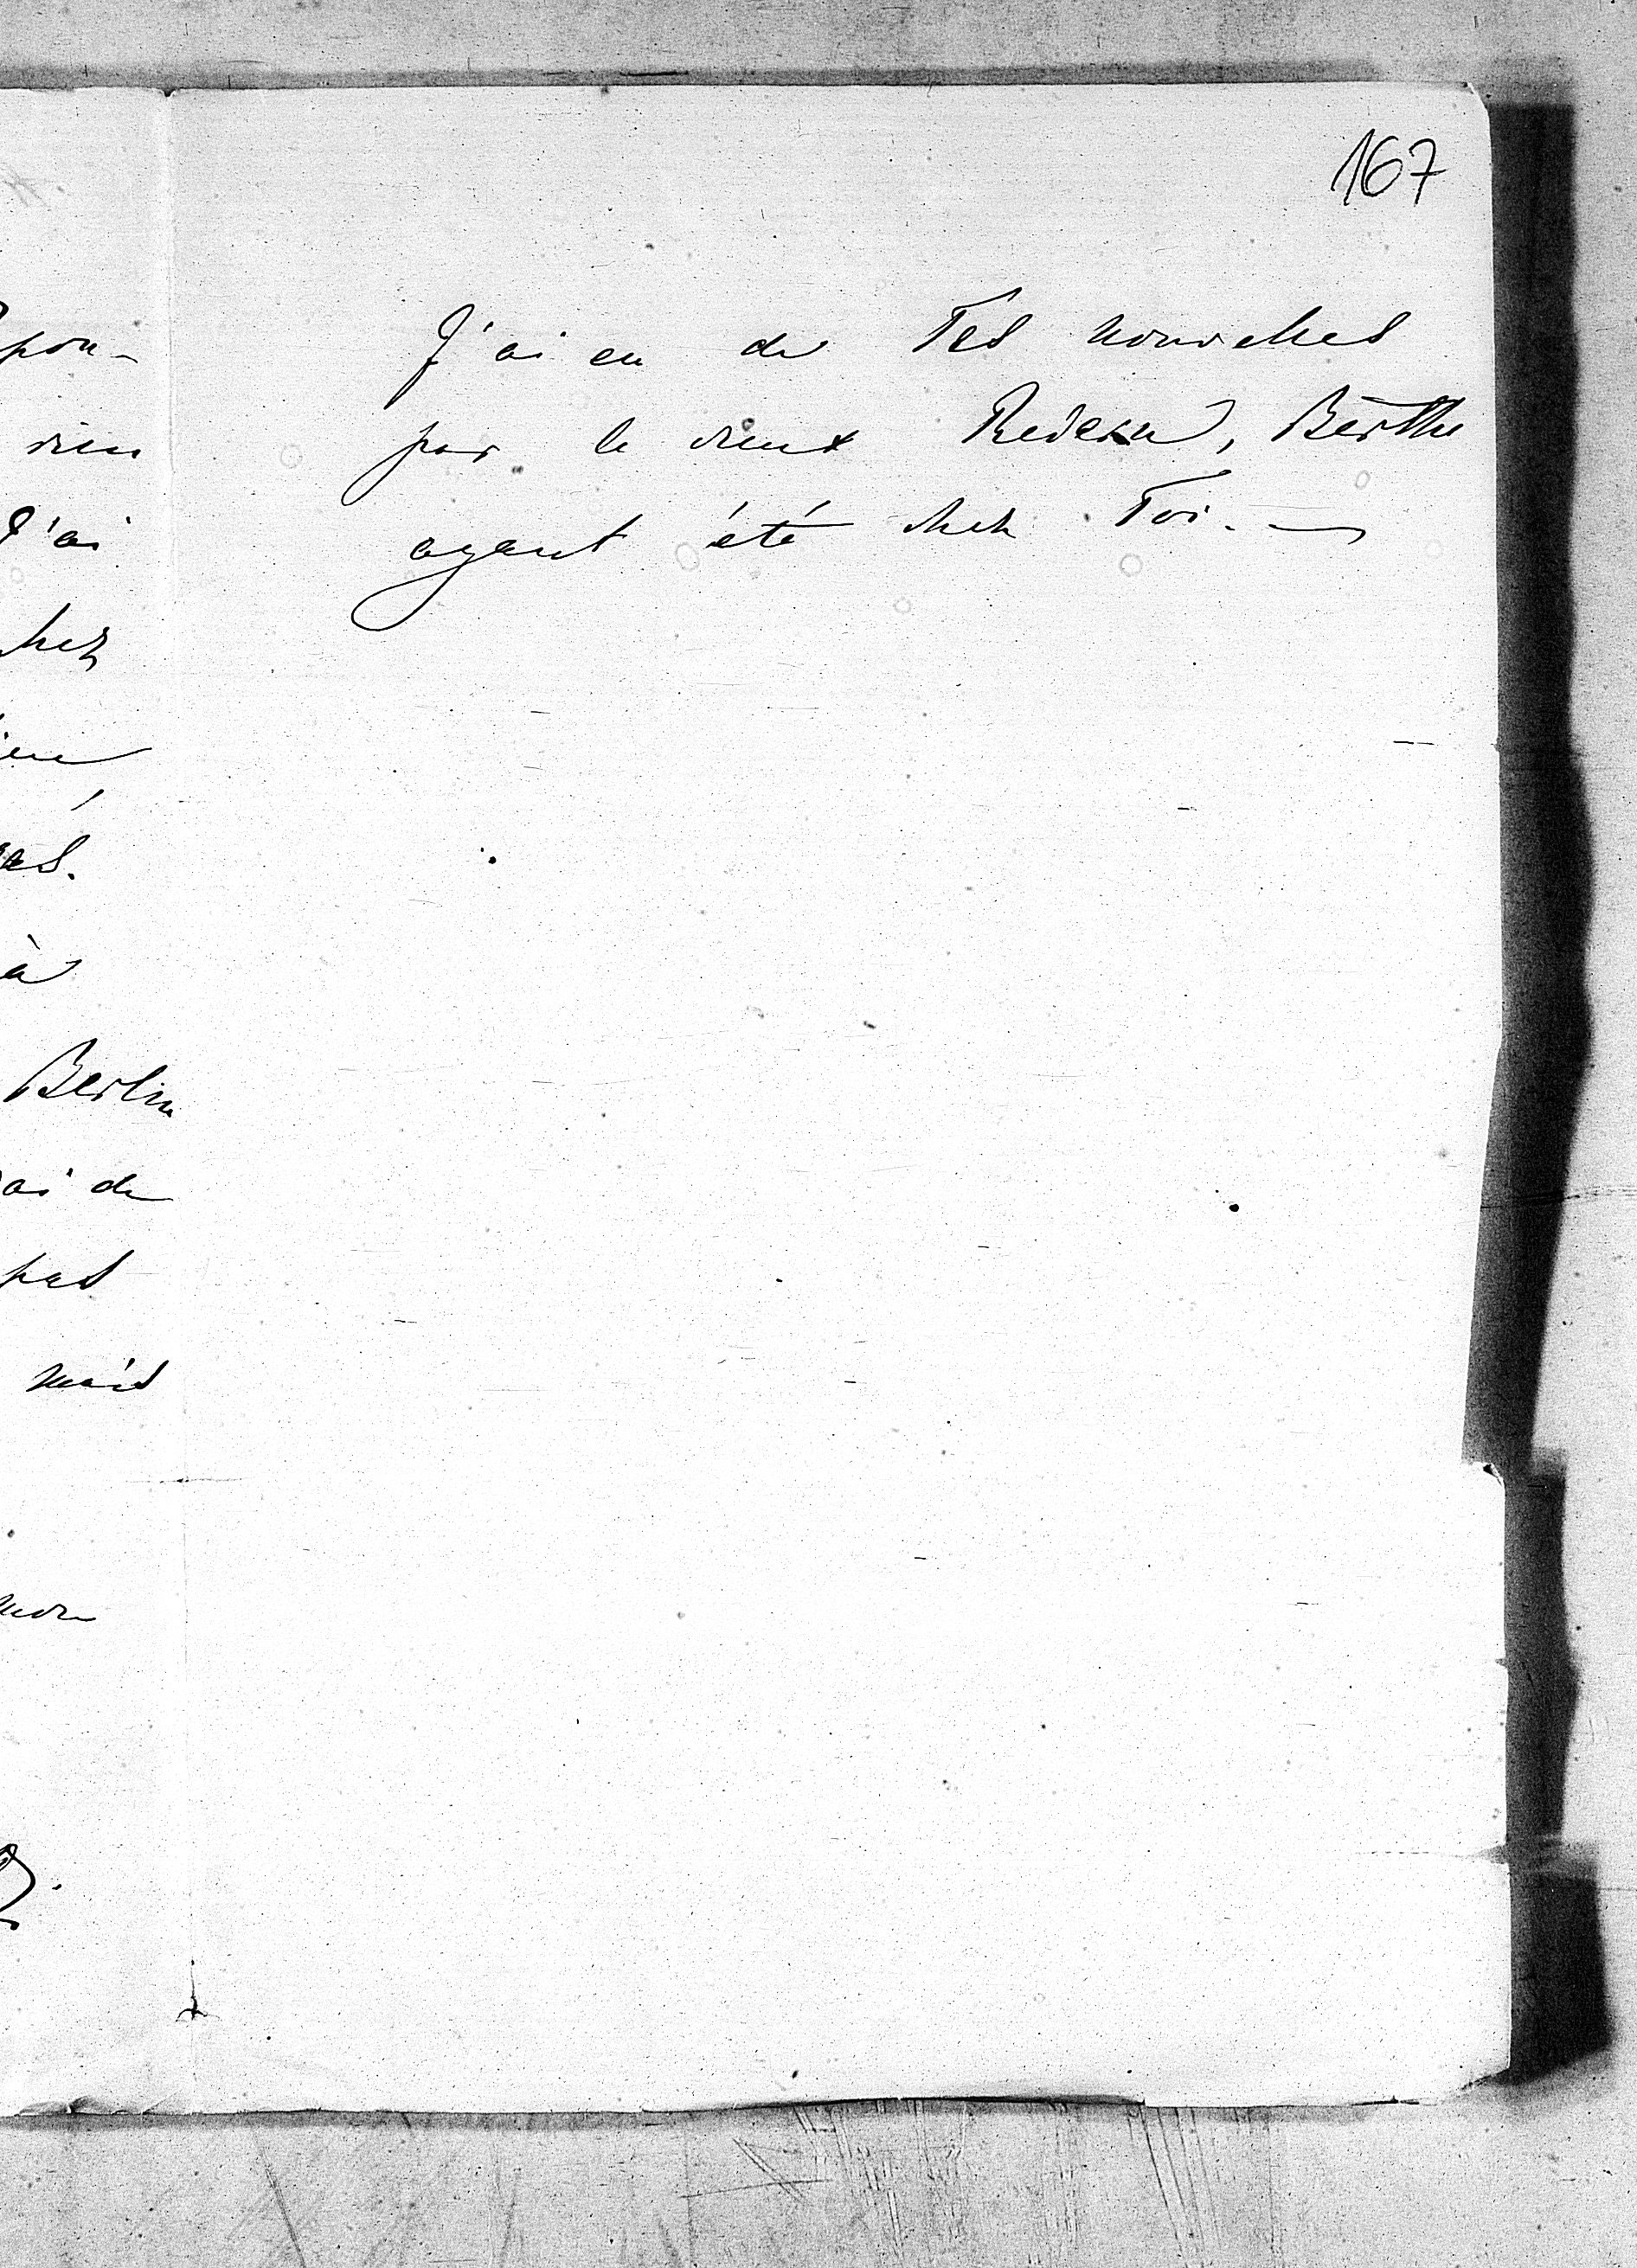 167
J'ai eu de Tes nouvelles
par le vieux Redern, Berthe
ayant été chez Toi. —
pon-
rien
J'ai
chez
à
Berlin
ai de
pas
mais
mon